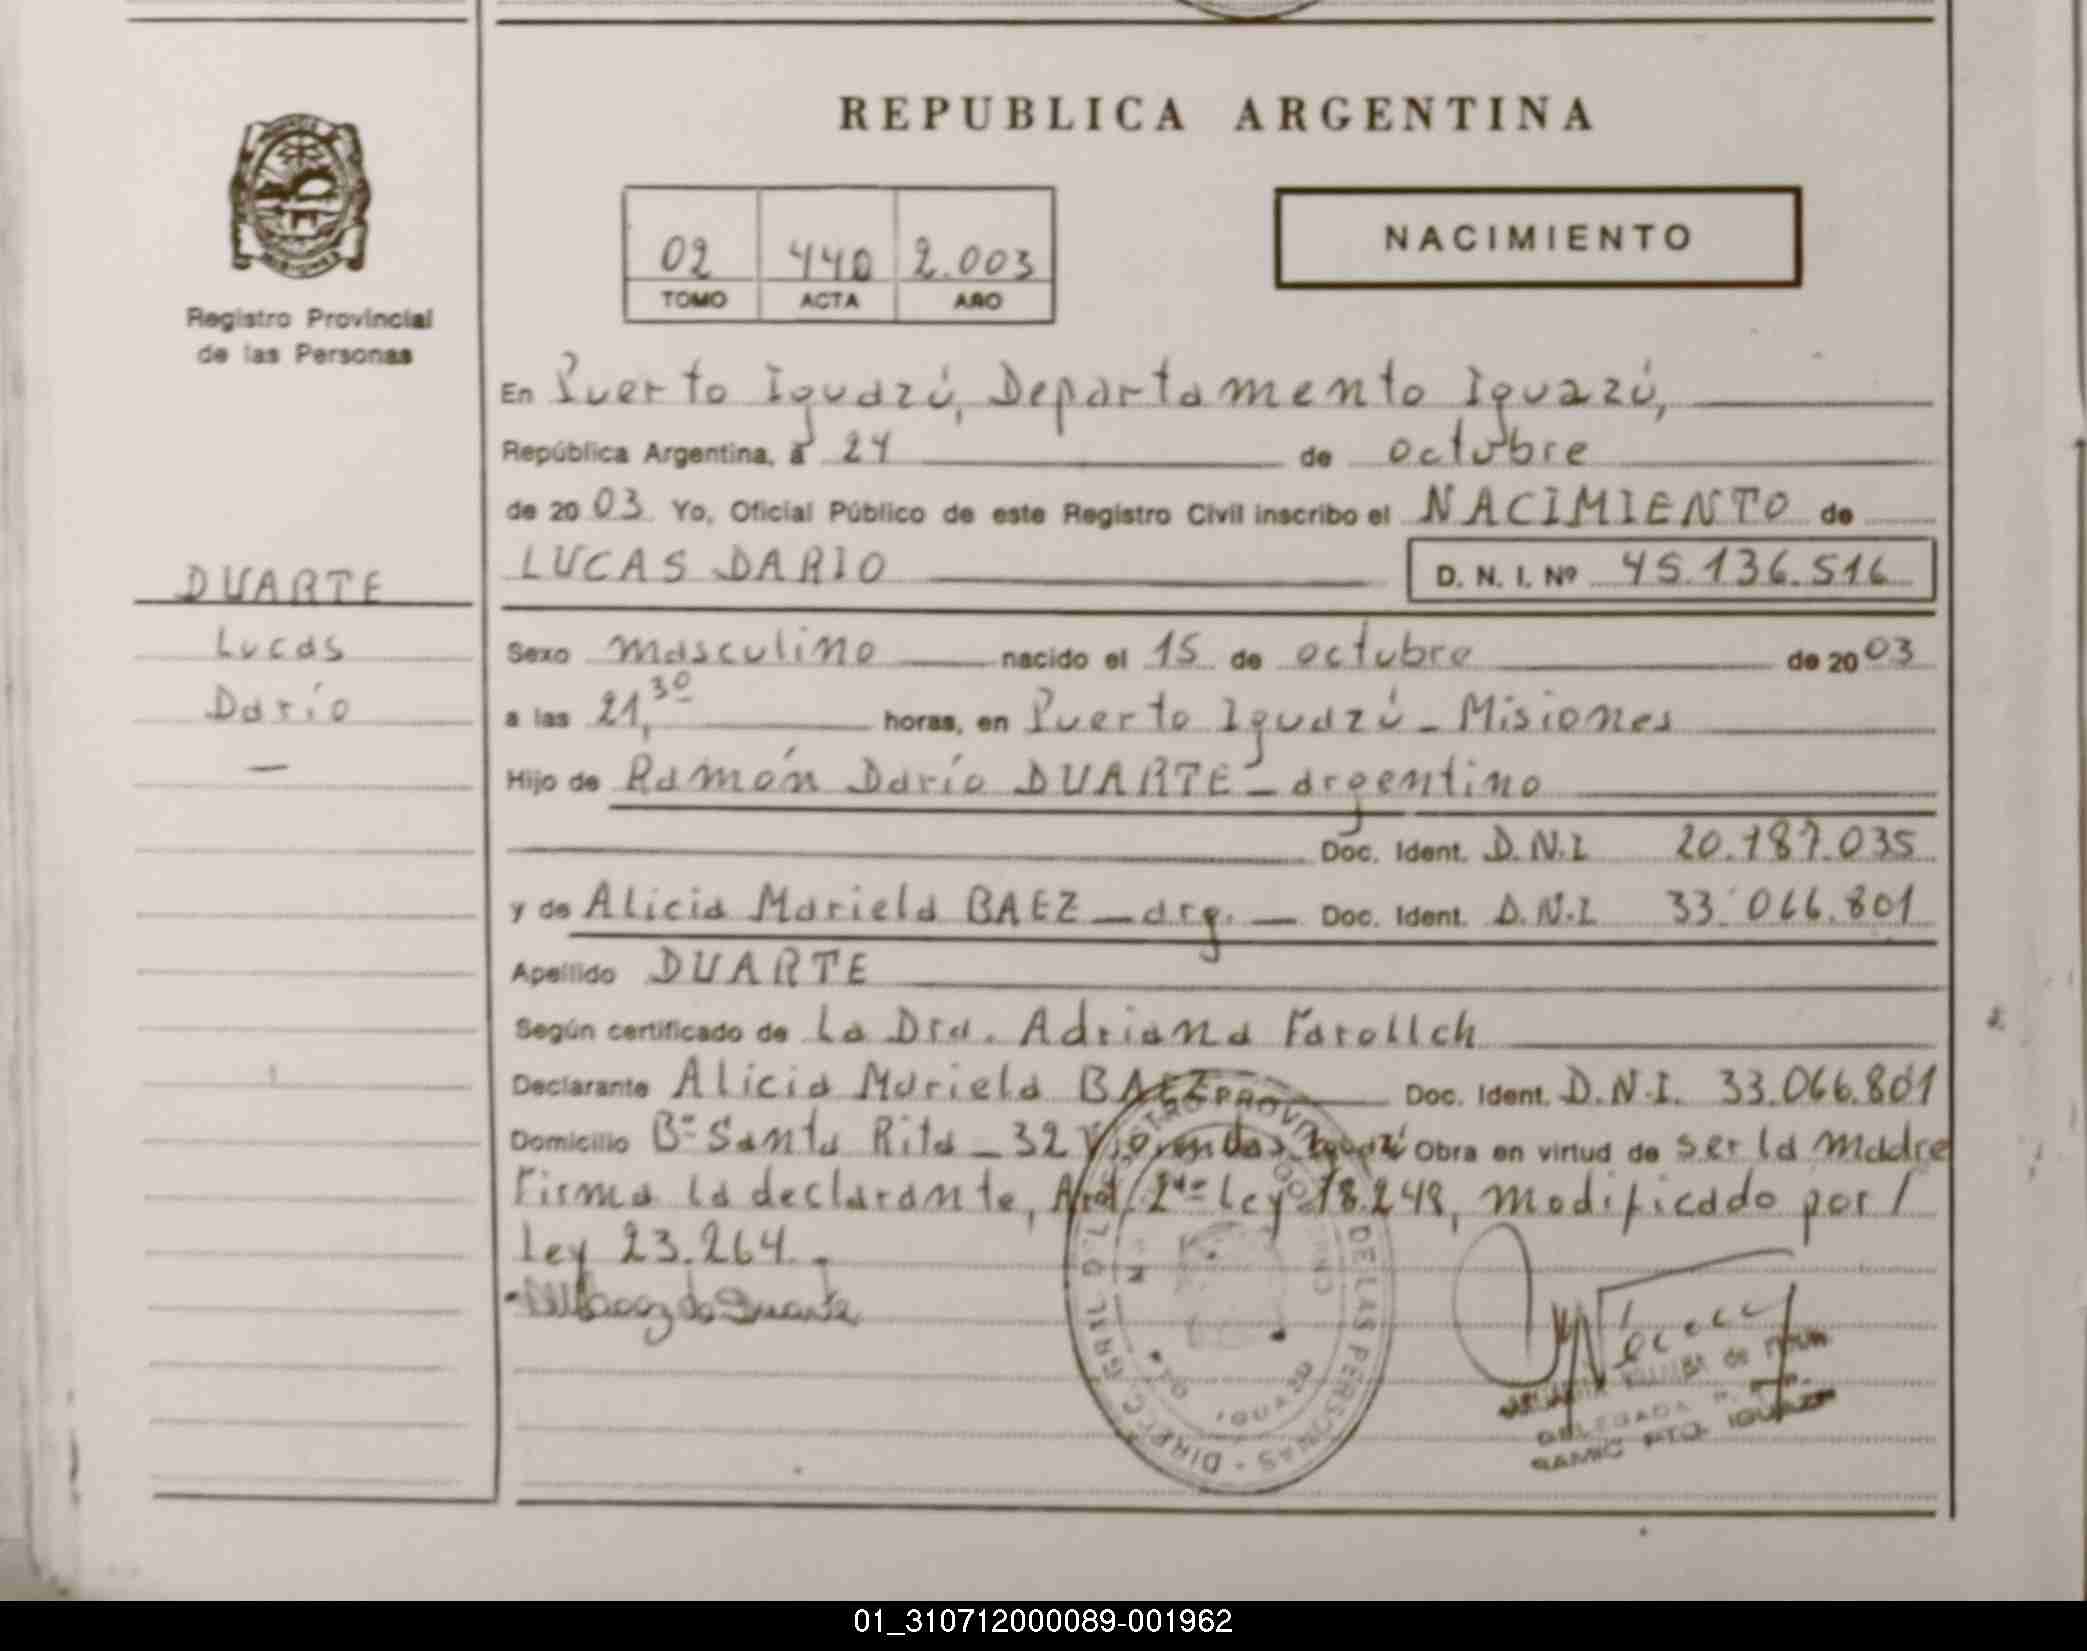 REPUBLICA ARGENTINA
NACIMIENTO
02 440 2.003
TOMO ACTA AÑO
Registro Provincial
de las Personas
En Puerto Iguazú, Departamento Iguazú,
República Argentina, a 24 de octubre
de 2003 Yo, Oficial Público de este Registro Civil inscribo el NACIMIENTO de
LUCAS DARIO D. N. I. Nº 45.136.516
DUARTE
Lucas
Darío
Sexo masculino nacido el 15 de octubre de 2003
a las 21,30 horas, en Puerto Iguazú - Misiones
Hijo de Ramón Darío DUARTE - argentino
Doc. Ident. D.N.I 20.187.035
y de Alicia Mariela BAEZ - arg. - Doc. Ident. D.N.I 33.066.801
Apellido DUARTE
Según certificado de La Dra. Adriana
Declarante Alicia Mariela BAEZ Doc. Ident. D.N.I. 33.066.801
Domicilio Bº Santa Rita - 32 Viviendas Iguazú Obra en virtud de ser la madre
Firma la declarante, Art. 2do Ley 18.248, modificado por /
Ley 23.264.-
DE LAS PERSONAS - DIRECC. GRAL. D
IGUAZU
DELEGADA
SAMIC PTO. IGUAZU
01_310712000089-001962